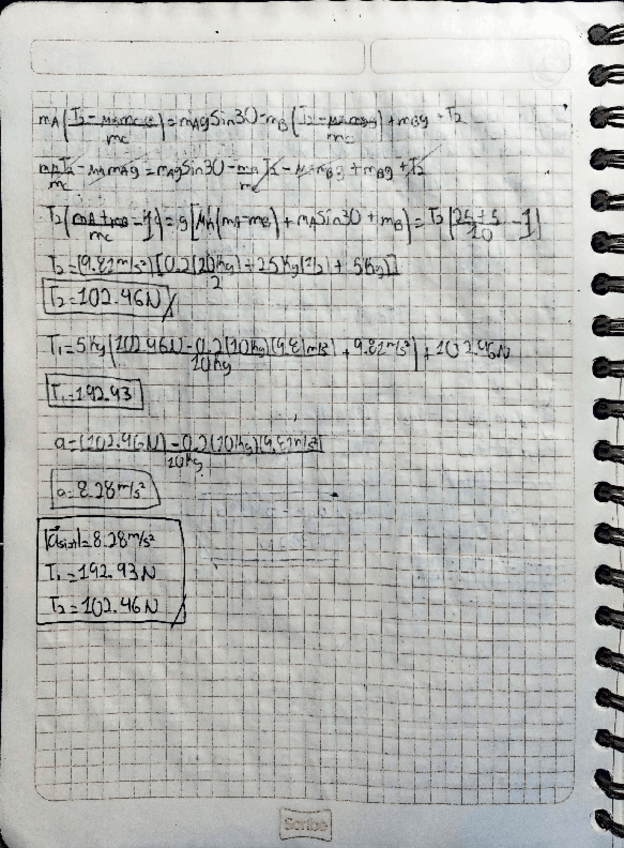 mA(T2-μkmcg/mc)=mAgSin30-mB(T2-μkmcg/mc)+mBg+T2
mAT2/mc-μkmAg=mAgSin30-mA/mc T2-μkmBg+mBg+T2
T2(mA+mB/mc-1)=g[μk(mA-mB)+mASin30+mB)=T2(25+5/10-1)
T2=(9.81m/s²)[0.2(20kg)+25kg(1/2)+5kg)]/2
T2=102.46N
T1=5kg(102.46N-0.2(10kg)(9.81m/s²)/10kg+9.81m/s²)+102.46N
T1=192.93
a=(102.46N)-0.2(10kg)(9.81m/s²)/10kg
a=8.28m/s²
|a⃗sist|=8.28m/s²
T1=192.93N
T2=102.46N
Scribe